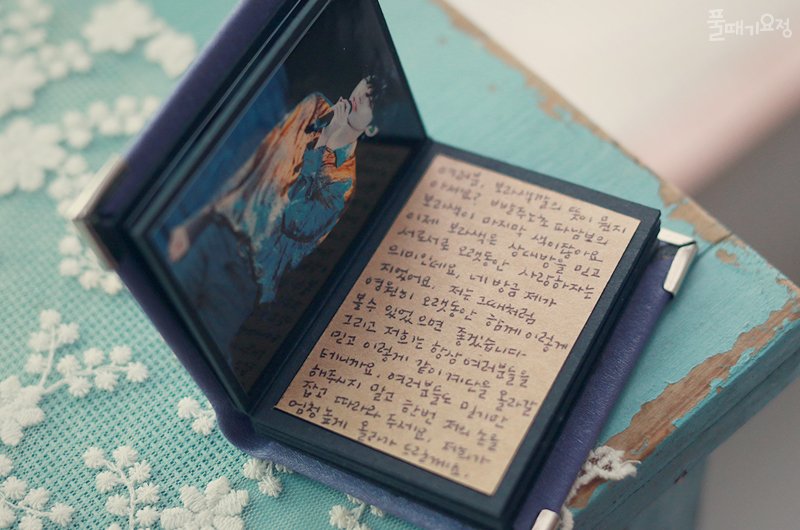 풀때기요정
여러분, 보라색깔의 뜻이 뭔지
아세요? 빨주노초파남보의
보라색이 마지막 색이잖아요
이제 보라색은 상대방을 믿고
서로서로 오랫동안 사랑하자는
의미인데요, 네 방금 제가
지었어요. 저는 그때처럼
영원히 오랫동안 함께 이렇게
볼수 있었으면 좋겠습니다
그리고 저희는 항상 여러분들을
믿고 이렇게 같이 계단을 올라갈
테니까요. 여러분들도 믿지만
해주시지 말고 한번 저의 손을
잡고 따라와 주세요. 저희가
엄청 높게 올라가 드릴게요.